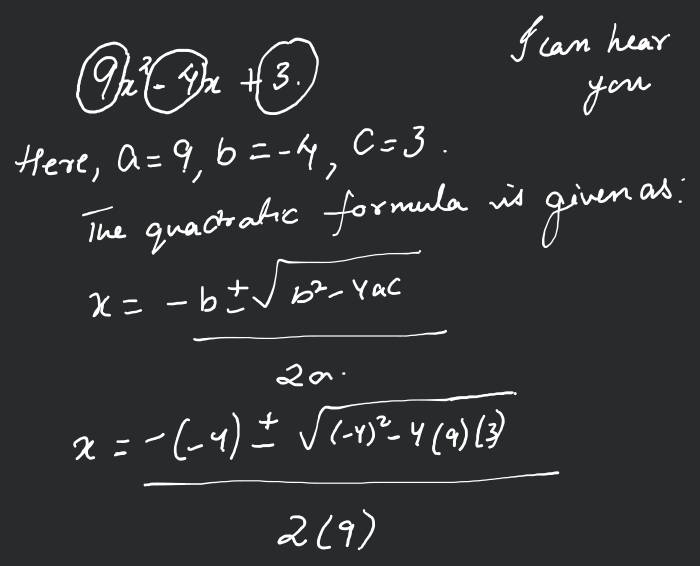 9x² - 4x + 3.
I can hear
you
Here, a = 9, b = -4, C = 3.
The quadratic formula is given as:
x = -b ± √b² - 4ac
2a.
x = -(-4) ± √(-4)² - 4(9)(3)
2(9)